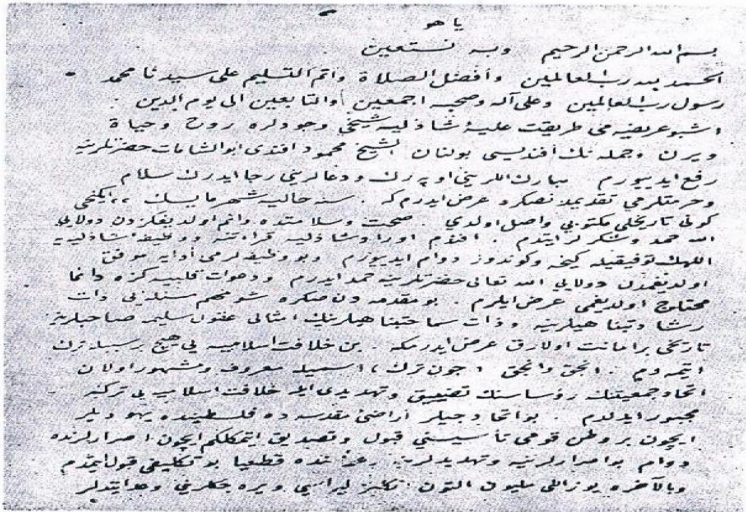 يا هو
بسم الله الرحمن الرحيم وبه نستعين
الحمد لله رب العالمين وأفضل الصلاة واتم التسليم على سيدنا محمد
رسول رب العالمين وعلى آله وصحبه اجمعين والتابعين الى يوم الدين
اشبو عريضه مى طريقت عليۀ شاذليه شيخى وجودلره روح وحياة
ويرن وجمله نك أفنديسى بولنان الشيخ محمود افندى ابو الشامات حضرتلرينه
رفع ايديورم مبارك اللرينى اوپه رك ودعالرينى رجا ايدرك سلام
وحرمتلرمى تقديمدنصكره عرض ايدرم كه سنه حاليه شهر مايسك ٢٢ ايكنجى
كونى تاريخلى مكتوبى واصل اولدى صحت وسلامتده دائم اولديغكزدن دولايى
الله حمد وشكرلر ايتدم افندم اوراد شاذليه قرائتنه و وظيفۀ شاذليه يه
اللهك توفيقيله كيجه وكوندوز دوام ايديورم وبو وظيفه لرمى أدايه موفق
اولديغمدن دولايى الله تعالى حضرتلرينه حمد ايدرم ودعوات قلبيه كزه دائما
محتاج اولديغمى عرض ايلرم بو مقدمه دن صكره شو مهم مسئله يى ذات
رشادتپناهيلرينه وذات سماحتپناهيلرينك امثالى عقول سليمه صاحبلرينه
تاريخى بر امانت اولارق عرض ايدرمكه بن خلافت اسلاميه يى هيچ بر سببله ترك
ايتمه دم انجق وانجق جون ترك اسميله معروف ومشهور اولان
اتحاد جمعيتنك رؤساسنك تضييق وتهديدى ايله خلافت اسلاميه يى تركه
مجبور ايدلدم بو اتحادجيلر أراضئ مقدسه ده فلسطينده يهوديلر
ايچون بر وطن قومى تأسيسنى قبول وتصديق ايتمكلكم ايچون اصرارلرنده
دوام بو اصرارلرينه وتهديدلرينه رغما بنده قطعيا بو تكليفى قبول ايتمدم
وبالآخره يوز اللى مليون التون انكليز ليراسى ويره جكلرينى وعد ايتديلر